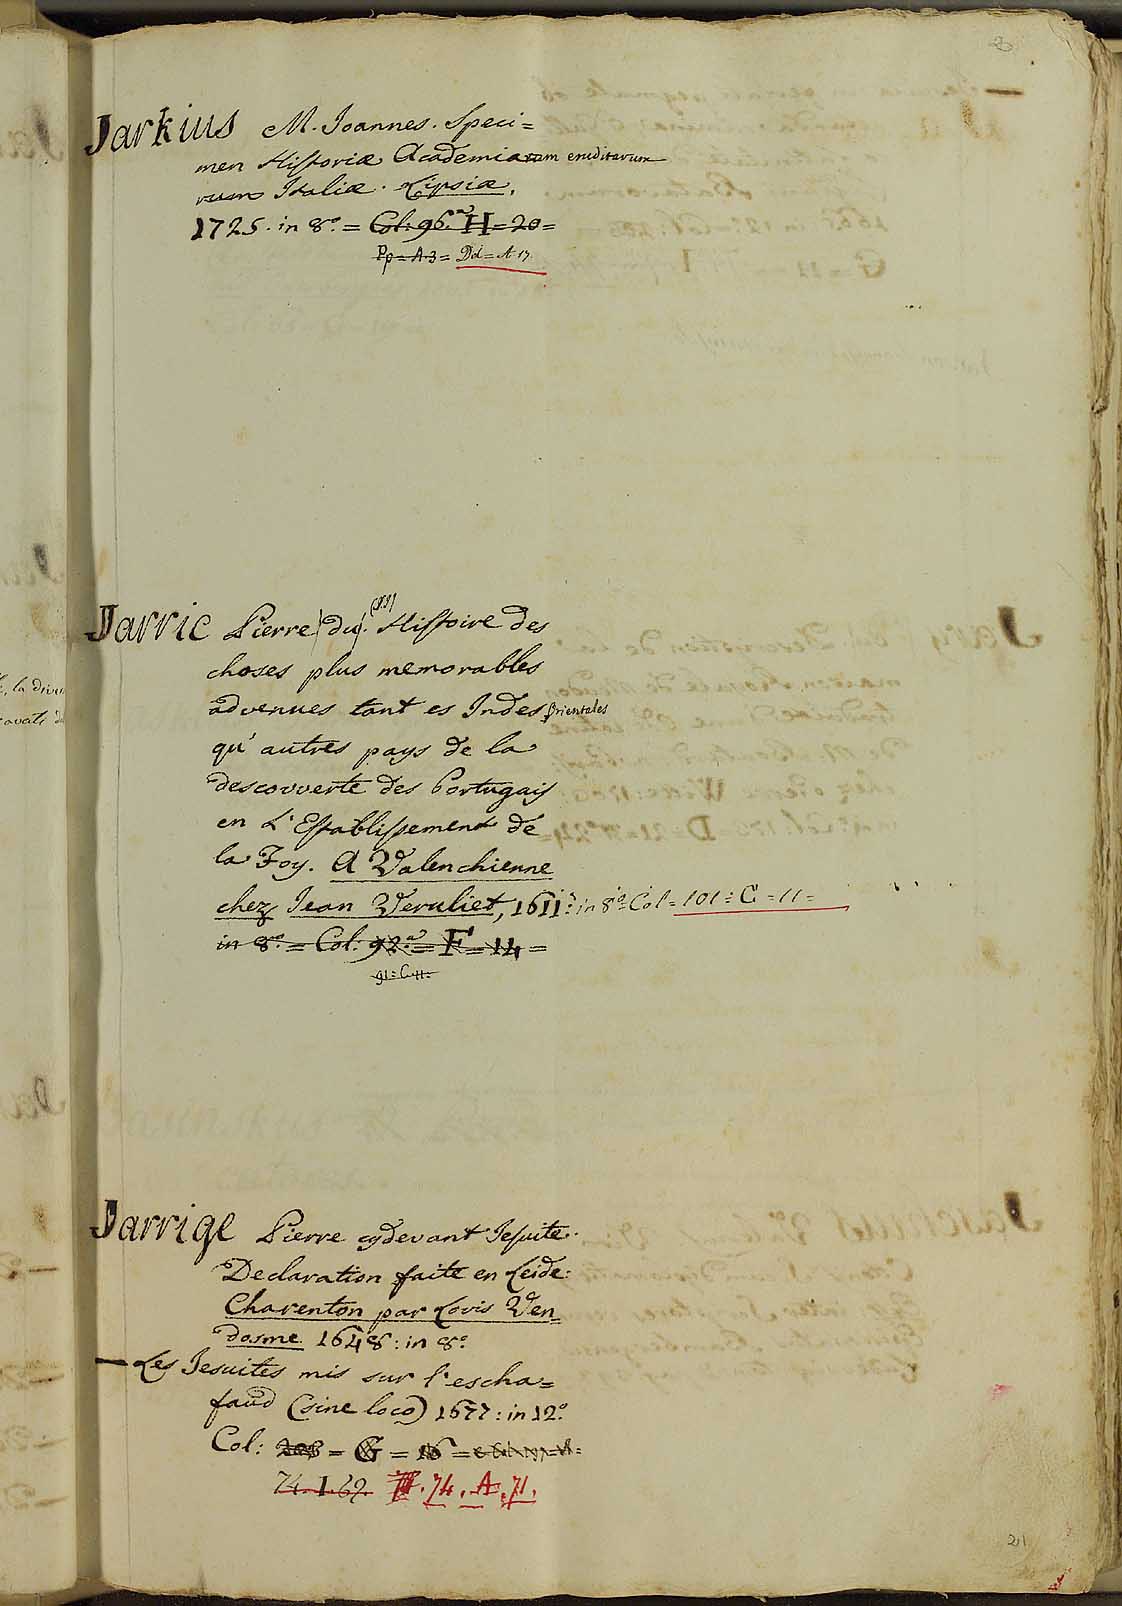 Jarkius M. Joannes. Speci=
men Historiæ Academiarum eruditarum
rum Italiæ. Lipsiæ.
1725. in 8.º = Col: 96.ª H = 20 =
Pp = A 3 = Dd = A 17
Jarric Pierre (du). (SJ) Histoire des
choses plus memorables
advenues tant es Indes Orientales
qu'autres pays de la
descouverte des Portugais
en L'Establissement de
la Foy. A Valenchienne
chez Jean Veruliet, 1611: in 8º Col = 101 = C = 11 =
in 8º = Col: 92.ª = F = 14 =
91 = C 11 =
Jarrige Pierre cydevant Jesuite.
Declaration faite en Leide:
Charenton par Lovis Ven=
dosme 1648: in 8º
— Les Jesuites mis sur l'escha=
faud (sine loco) 1677: in 12º.
Col: = G = 16 =
74. I. 62. 74. A. 71.
é, la divi
21